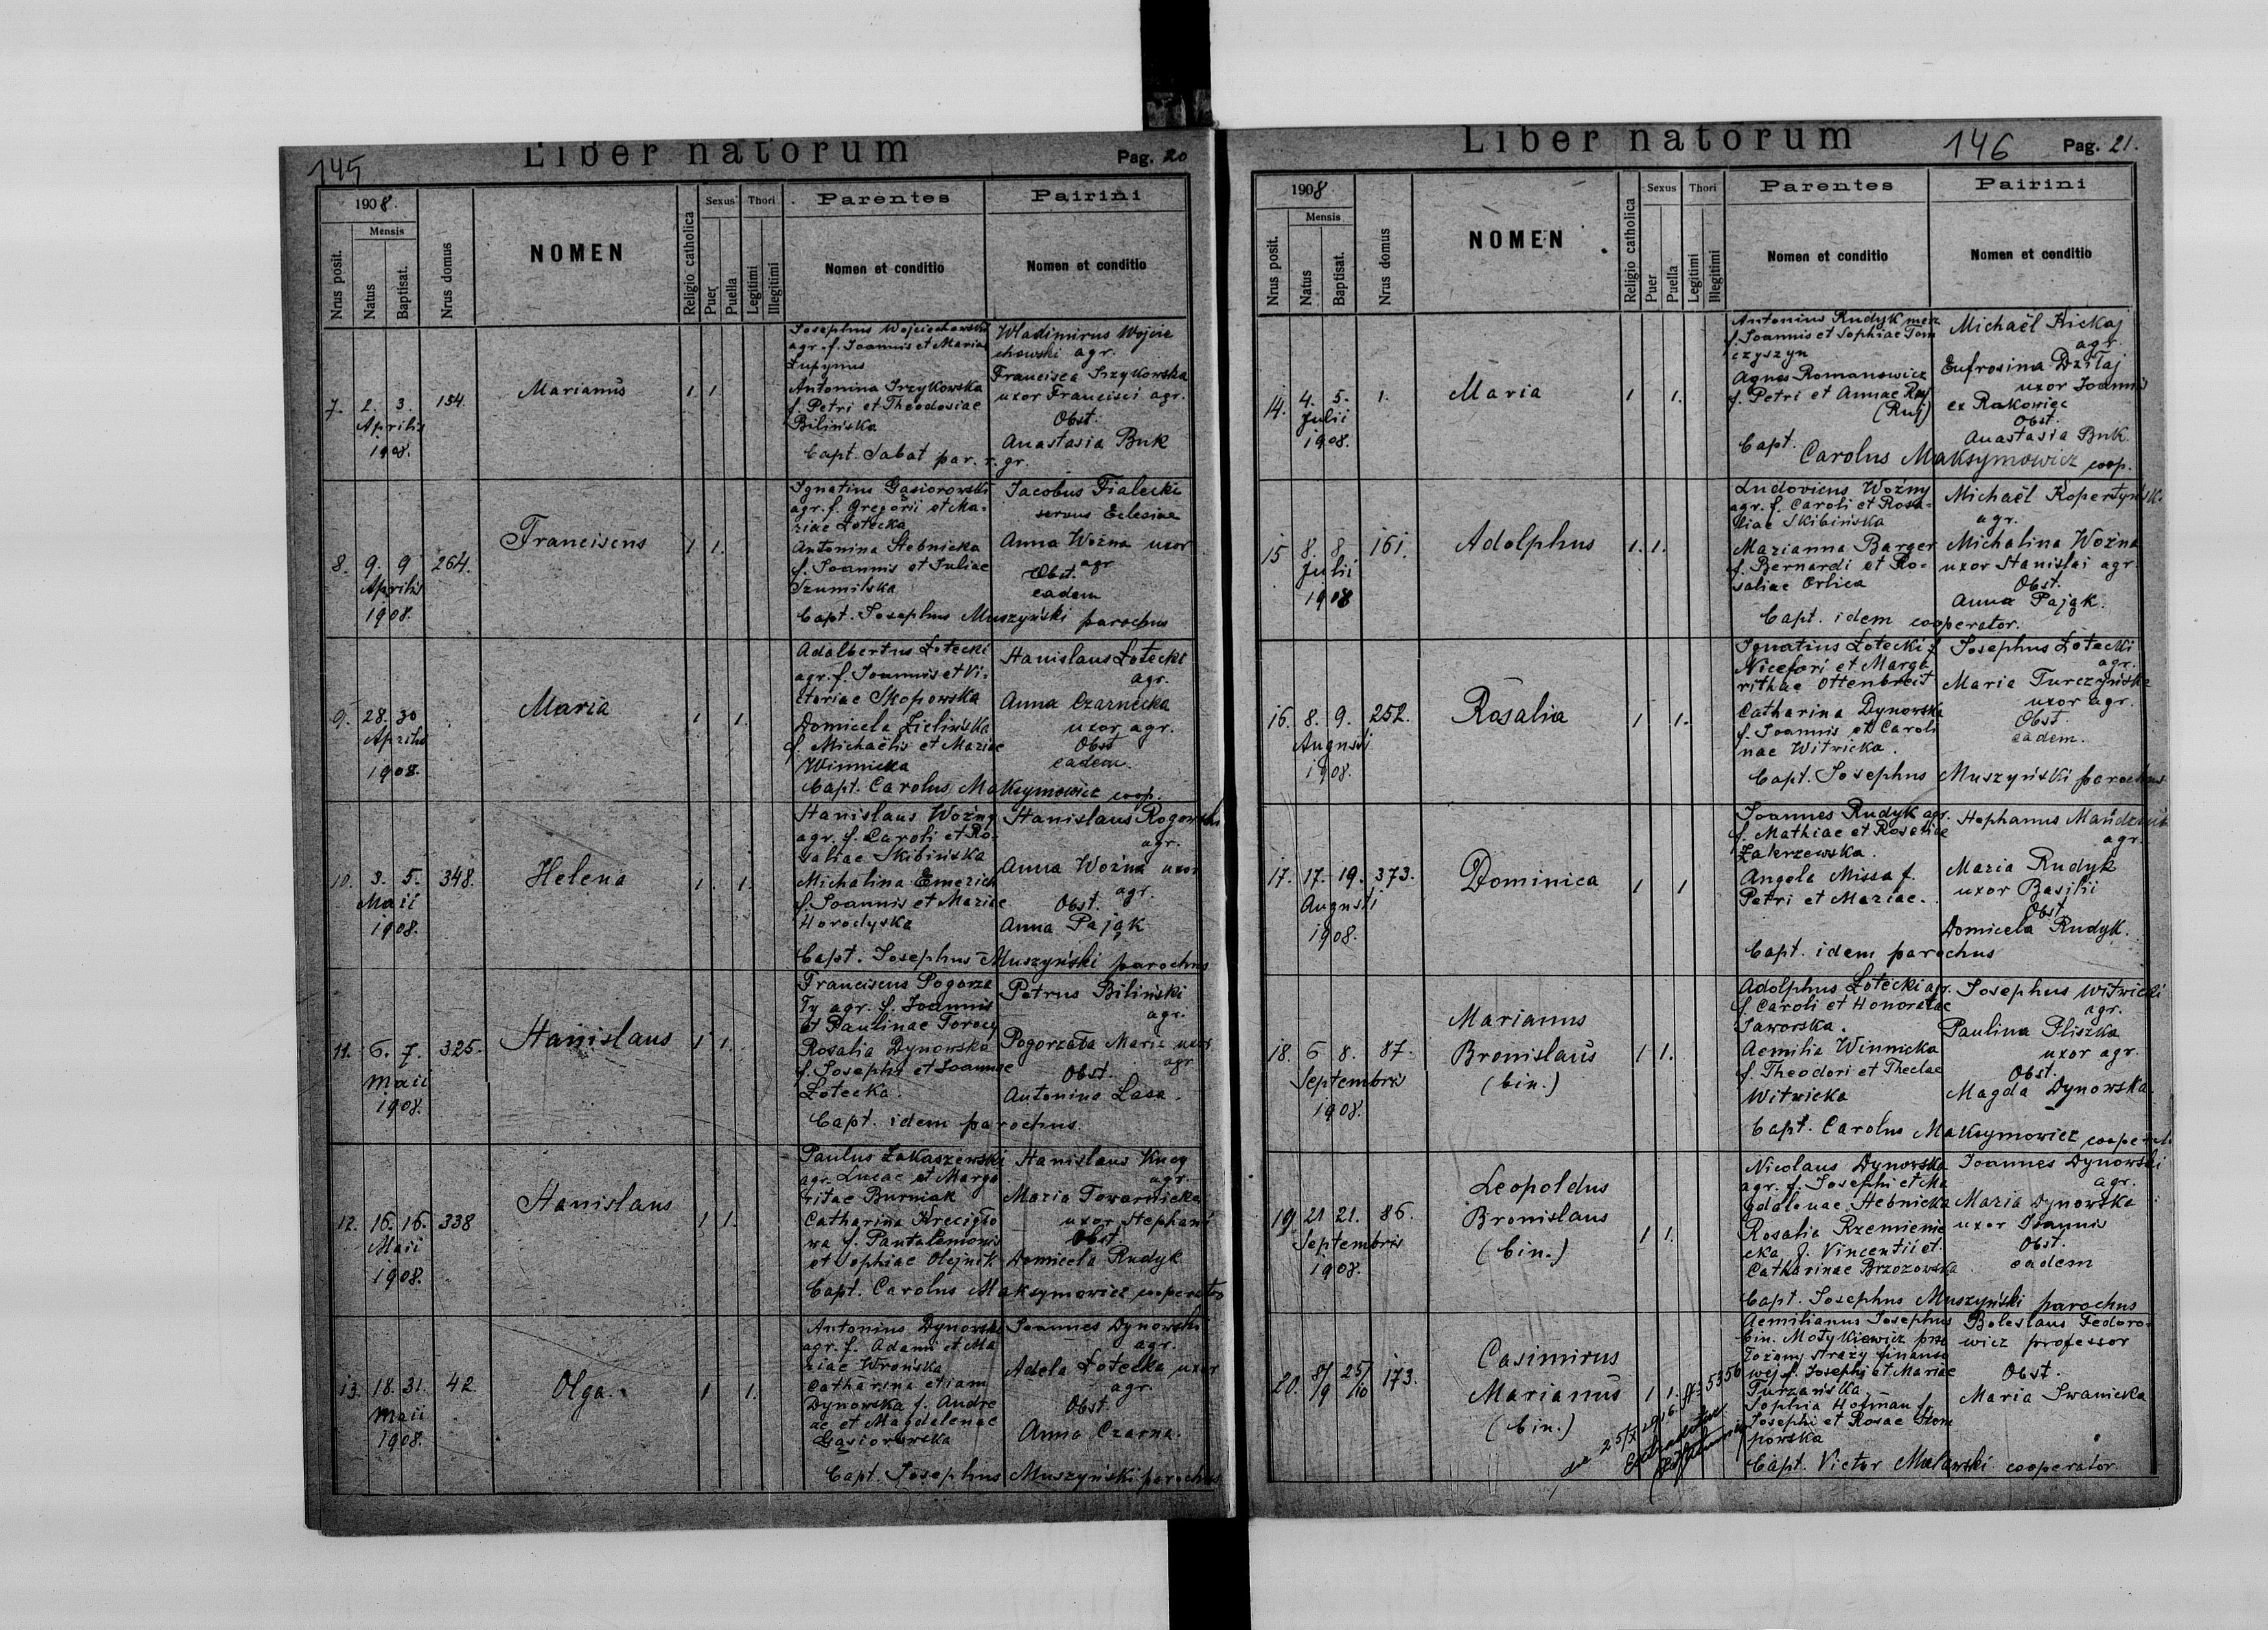 145
Liber natorum
Pag. 20
1908.
Mensis
Nrus posit.
Natus
Baptisat.
Nrus domus
NOMEN
Religio catholica
Sexus
Puer
Puella
Thori
Legitimi
Illegitimi
Parentes
Nomen et conditio
Pairini
Nomen et conditio
7. 2. 3. 154.
Aprilis
1908.
Marianus
1 1.
Josephus Wojciechowski
agr. f. Joannis et Mariae
Antonina Irzykowska
f. Petri et Theodosiae
Bilińska
Wladimirus Wojcie
chowski agr.
Francisca Irzykowska
uxor Francisci agr.
Obst.
Anastasia Buk
Capt. Sabat par. r. gr.
8. 9. 9 264.
Aprilis
1908.
Franciscus
1 1.
Ignatius Gąsiorowski
agr. f. Gregorii et Ma-
riae Łotecka
Antonina Stebnicka
f. Joannis et Juliae
Szumilska
Jacobus Fialecki
servus Eclesiae
Anna Woźna uxor
agr
Obst.
eadem
Capt. Josephus Muszyński parochus
9. 28. 30
Aprilis
1908.
Maria
1. 1.
Adalbertus Łotecki
agr. f. Joannis et Vi-
ctoriae Skopowska
Domicela Zielińska
f. Michaëlis et Mariae
Winnicka
Stanislaus Łotecki
agr.
Anna Czarnecka
uxor agr.
Obst
eadem.
Capt. Carolus Maksymowicz coop.
10. 3. 5. 348.
Maii
1908.
Helena
1. 1.
Stanislaus Woźny
agr. f. Caroli et Ro-
saliae Skibińska
Michalina Emerich
f. Joannis et Mariae
Horodyska
Stanislaus Rogowski
agr.
Anna Woźna uxor
agr.
Obst.
Anna Pająk
Capt. Josephus Muszyński parochus
11. 6. 7. 325.
Maii
1908.
Stanislaus
1 1.
Franciscus Pogorza
ły agr. f. Joannis
et Paulinae
Rosalia Dynowska
f. Josephi et Joannae
Łotecka.
Petrus Biliński
agr.
Pogorzała Maria uxor
agr
Obst.
Antonina Lasa.
Capt. idem parochus.
12. 16. 16. 338
Maii
1908.
Stanislaus
1 1.
Paulus Łukaszewski
agr. Lucae et Marga
ritae Burniak
Catharina Kreciglo
wa f. Pantalemonis
et Sophiae Olejnik
Stanislaus
agr.
Maria Towarnicka
uxor Stephani
Obst.
Domicela Rudyk
Capt. Carolus Maksymowicz cooperator
13. 18. 31. 42.
Maii
1908.
Olga.
1 1.
Antonius Dynowski
agr. f. Adami et Ma
riae Wrońska
Catharina etiam
Dynowska f. Andre
ae et Magdalenae
Gąsiorowska
Joannes Dynowski
agr.
Adela Łotecka uxor
agr.
Obst.
Anna Czarna.
Capt. Josephus Muszyński parochus
Liber natorum
146
Pag. 21.
1908
Mensis
Nrus posit.
Natus
Baptisat.
Nrus domus
NOMEN
Religio catholica
Sexus
Puer
Puella
Thori
Legitimi
Illegitimi
Parentes
Nomen et conditio
Pairini
Nomen et conditio
14. 4. 5. 1.
Julii
1908.
Maria
1 1.
Antonius Rudyk
f. Joannis et Sophiae Tom
czyszyn
Agnes Romanowicz
f. Petri et Annae
(Ruj)
Michaël Hickaj
agr.
Eufrosina
uxor Joannis
ex Rakowiec
Obst.
Anastasia Buk.
Capt. Carolus Maksymowicz coop.
15 8. 8. 161.
Julii
1908
Adolphus
1. 1.
Ludovicus Woźny
agr. f. Caroli et Rosa-
liae Skibińska
Marianna Barger
f. Bernardi et Ro-
saliae Orlica
Michaël Kopertyński
agr.
Michalina Woźna
uxor Stanislai agr.
Obst.
Anna Pająk.
Capt. idem cooperator.
16. 8. 9. 252.
Augusti
1908.
Rosalia
1 1.
Ignatius Łotecki f.
Nicefori et Marga
rithae Ottenbreit
Catharina Dynowska
f. Joannis et Caroli
nae Witwicka.
Josephus Łotecki
agr.
Maria Turczyńska
uxor agr.
Obst.
eadem.
Capt. Josephus Muszyński parochus
17. 17. 19. 373.
Augusti
1908.
Dominica
1 1
Joannes Rudyk agr.
f. Mathiae et Rosaliae
Zakrzewska.
Angela Missa f.
Petri et Mariae.
Stephanus
agr.
Maria Rudyk
uxor Basilii
Obst.
Domicela Rudyk.
Capt. idem parochus
18. 6 8. 87.
Septembris
1908.
Marianus
Bronislaus
(bin.)
1 1.
Adolphus Łotecki agr.
f. Caroli et Honoratae
Jaworska.
Aemilia Winnicka
f. Theodori et Theclae
Witwicka
Josephus Witwicki
agr.
Paulina Pliszka
uxor agr.
Obst.
Magda Dynowska.
Capt. Carolus Maksymowicz
19 21 21. 86.
Septembris
1908.
Leopoldus
Bronislaus
(bin.)
1 1.
Nicolaus Dynowska
agr. f. Josephi et Ma
gdalenae Stebnicka
Rosalia Rzemienie
cka f. Vincentii et
Catharinae Brzozowska
Joannes Dynowski
agr.
Maria Dynowska
uxor Joannis
Obst.
eadem
Capt. Josephus Muszyński parochus
20. 8/9 25/10 173.
Casimirus
Marianus
(bin.)
1 1.
Aemilianus Josephus
bin. Motykiewicz prze
łożony straży finanso
wej f. Josephi et Mariae
Turzańska
Sophia Hofman f.
Josephi et Rosae
powska
Boleslaus Fedoro-
wicz professor
Obst.
Maria Iwanicka
Capt. Victor Malawski cooperator.